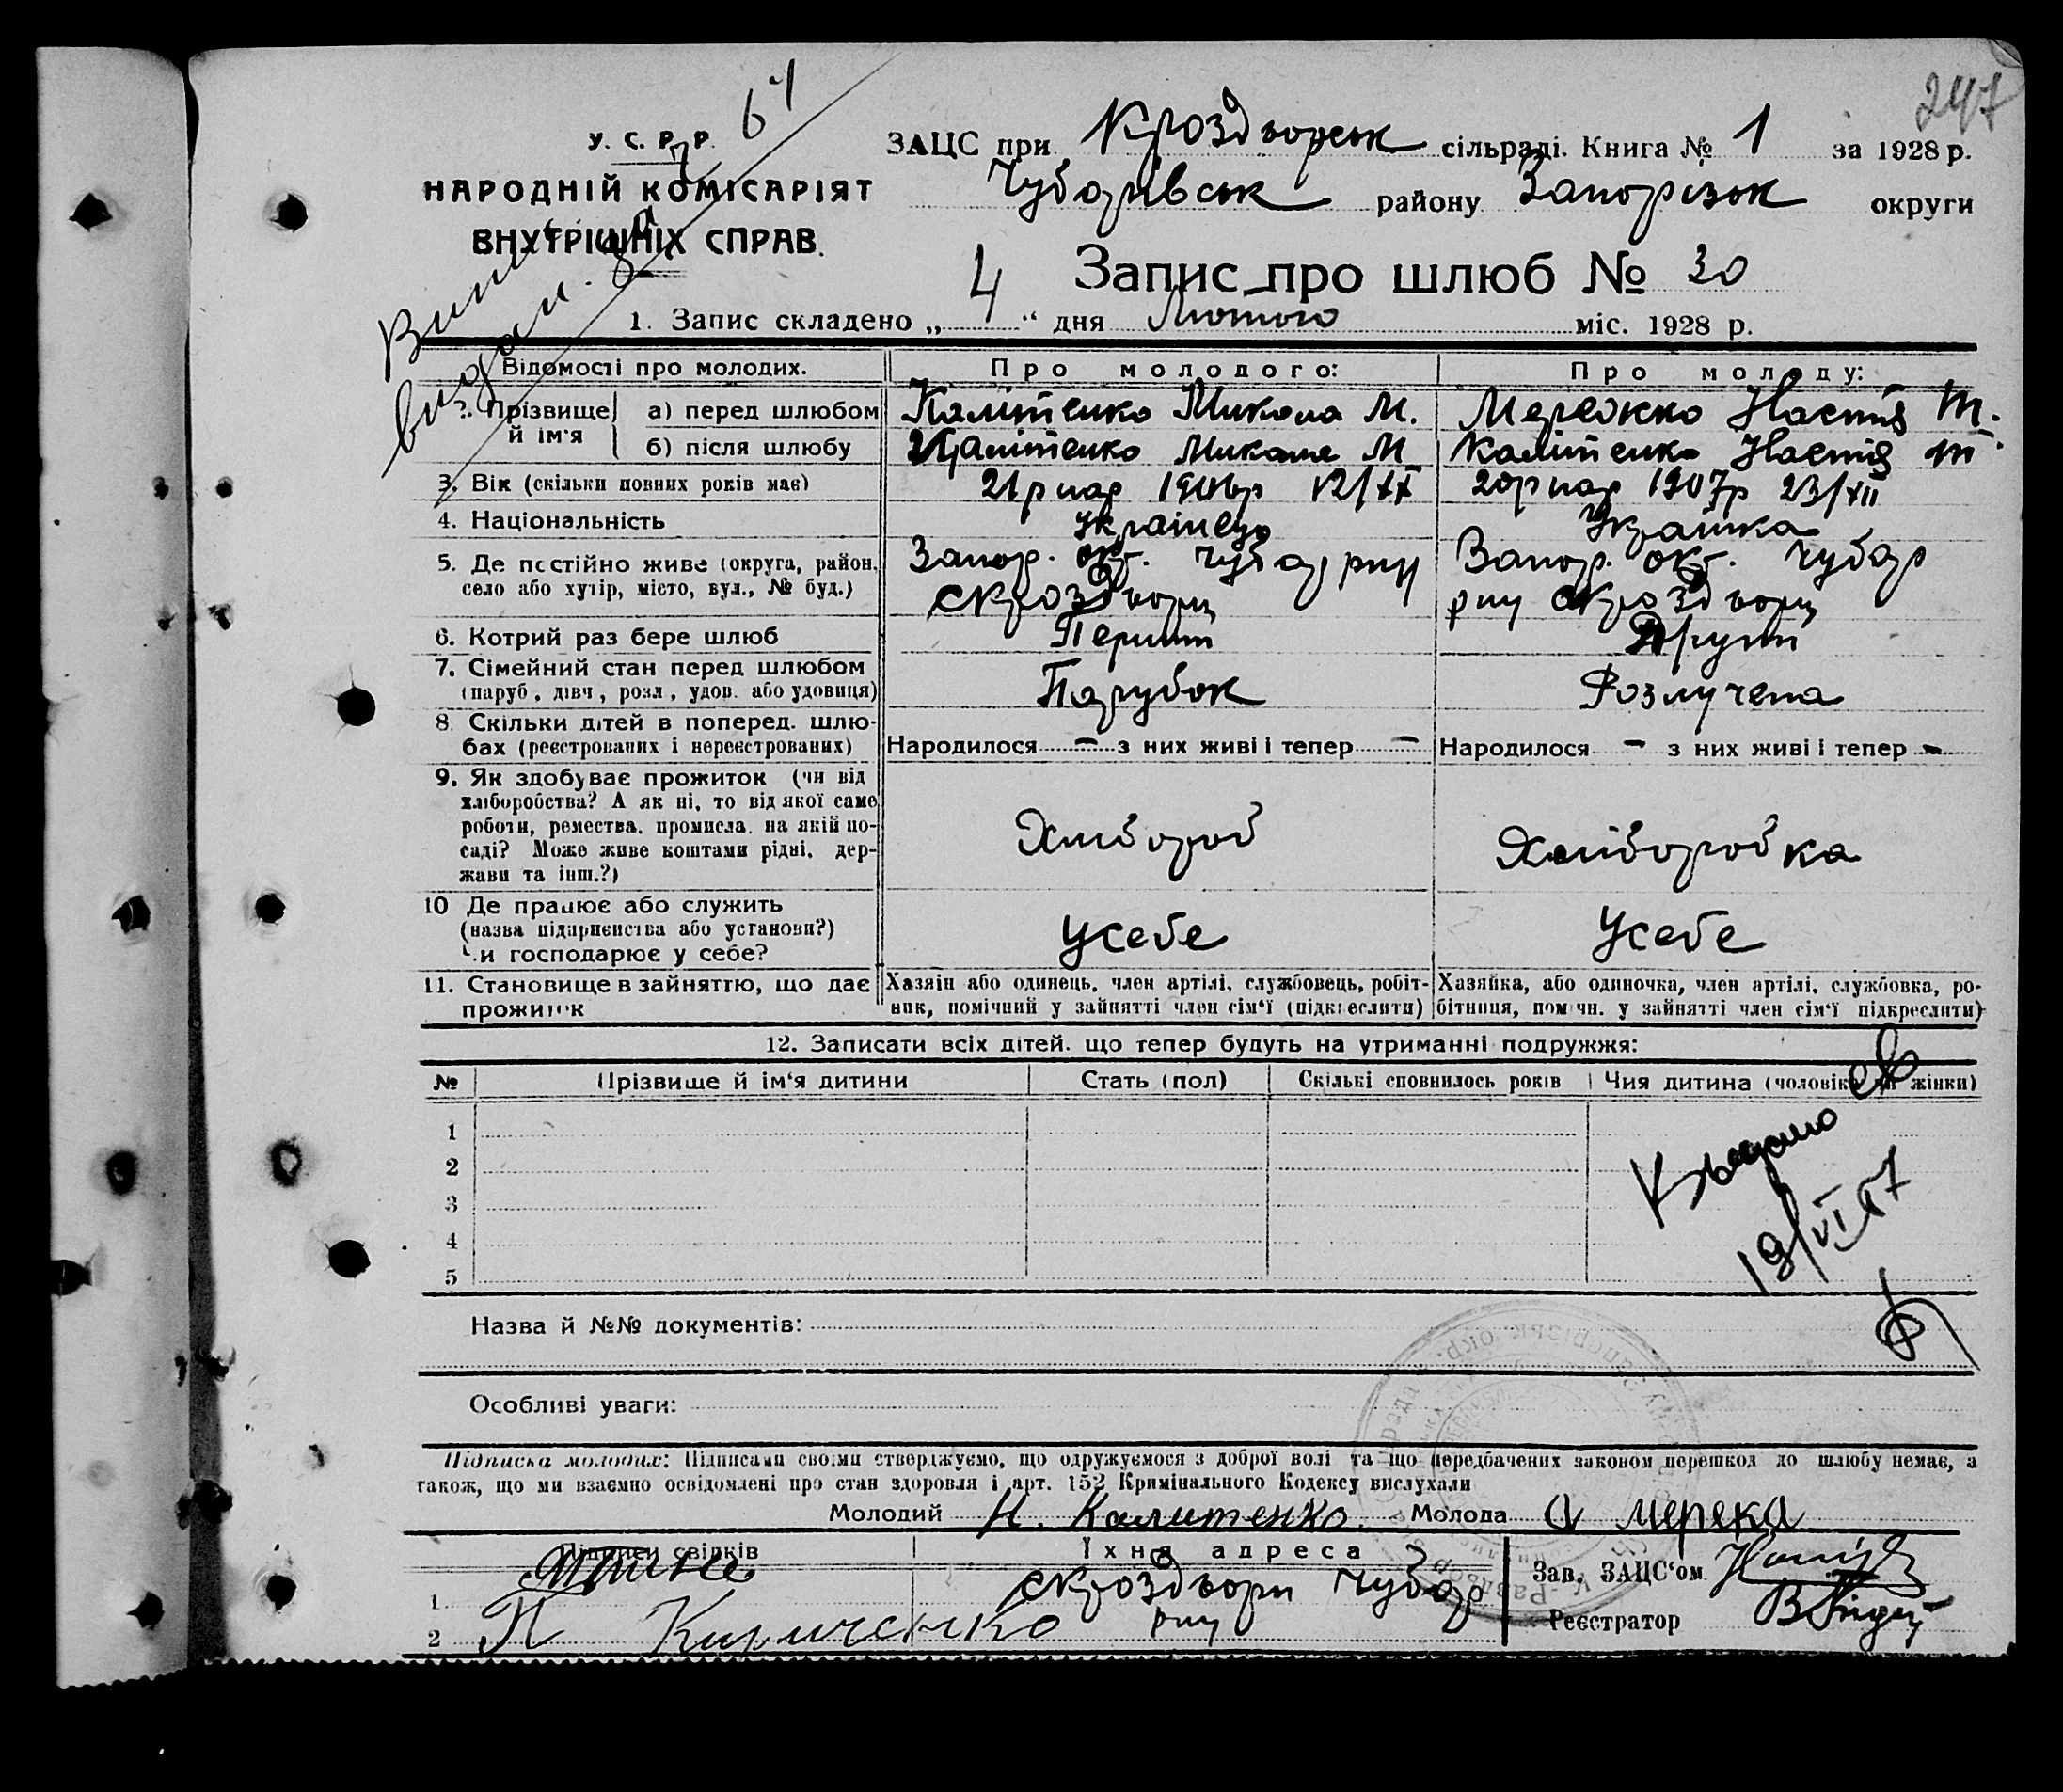 247
67
У. С. Р. Р.
НАРОДНІЙ КОМІСАРІЯТ
ВНУТРІШНІХ СПРАВ.
ЗАЦС при Кроздворськ сільраді. Книга № 1 за 1928 р.
Чубарівськ району Запорізьк округи
Запис про шлюб № 30
1. Запис складено „ 4 “ дня Лютого міс. 1928 р.
Відомості про молодих. Про молодого: Про молоду:
2. Прізвище й ім'я а) перед шлюбом Калітенко Микола М. Мережко Настя Т.
б) після шлюбу Калітенко Микола М Калітенко Настя Т
3. Вік (скільки повних років має) 21 р нар 1906р 12/ХІ 20 р нар 1907р 23/ХІІ
4. Національність Українець Українка
5. Де постійно живе (округа, район, Запор. окр. Чубар рну Запор. окр. Чубар
село або хутір, місто, вул., № буд.) с Кроздвори рну с Кроздвори
6. Котрий раз бере шлюб Перший Другий
7. Сімейний стан перед шлюбом
(паруб., дівч., розл., удов. або удовиця) Парубок Розлучена
8. Скільки дітей в поперед. шлю-
бах (реєстрованих і нереєстрованих) Народилося - з них живі і тепер - Народилося - з них живі і тепер -
9. Як здобуває прожиток (чи від
хліборобства? А як ні, то від якої саме
роботи, ремества, промисла, на якій по-
саді? Може живе коштами рідні, дер-
жави та інш.?) Хлібороб Хліборобка
10 Де працює або служить
(назва підприємства або установи?)
Чи господарює у себе? У себе У себе
11. Становище в зайняттю, що дає Хазяїн або одинець, член артілі, службовець, робіт- Хазяйка, або одиночка, член артілі, службовка, ро-
прожиток ник, помічний у зайнятті член сім'ї (підкреслити) бітниця, помічн. у зайнятті член сім'ї підкреслити)
12. Записати всіх дітей, що тепер будуть на утриманні подружжя:
№ Прізвище й ім'я дитини Стать (пол) Скількі сповнилось років Чия дитина (чоловіка чи жінки)
1
2
3
4
5
19/VI 57
Назва й №№ документів:
Особливі уваги:
Підписка молодих: Підписами своїми стверджуємо, що одружуємося з доброї волі та що передбачених законом перешкод до шлюбу немає, а
також, що ми взаємно освідомлені про стан здоровля і арт. 152 Кримінального Кодексу вислухали
Молодий Н. Калитенко. Молода А мережа
Підписи свідків Їхня адреса
Зав. ЗАЦС'ом
1 с Кроздвори Чубар
2 П Кириченко рну
Реєстратор